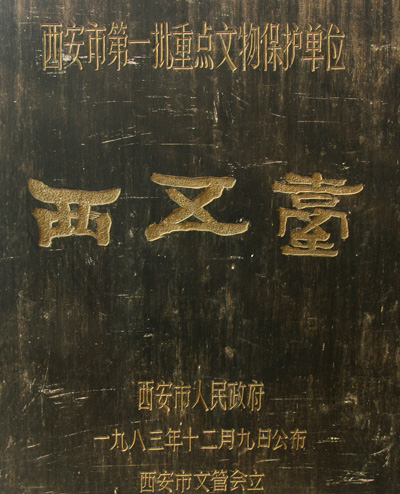 西安市第一批重点文物保护单位
西五臺
西安市人民政府
一九八三年十二月九日公布
西安市文管会立